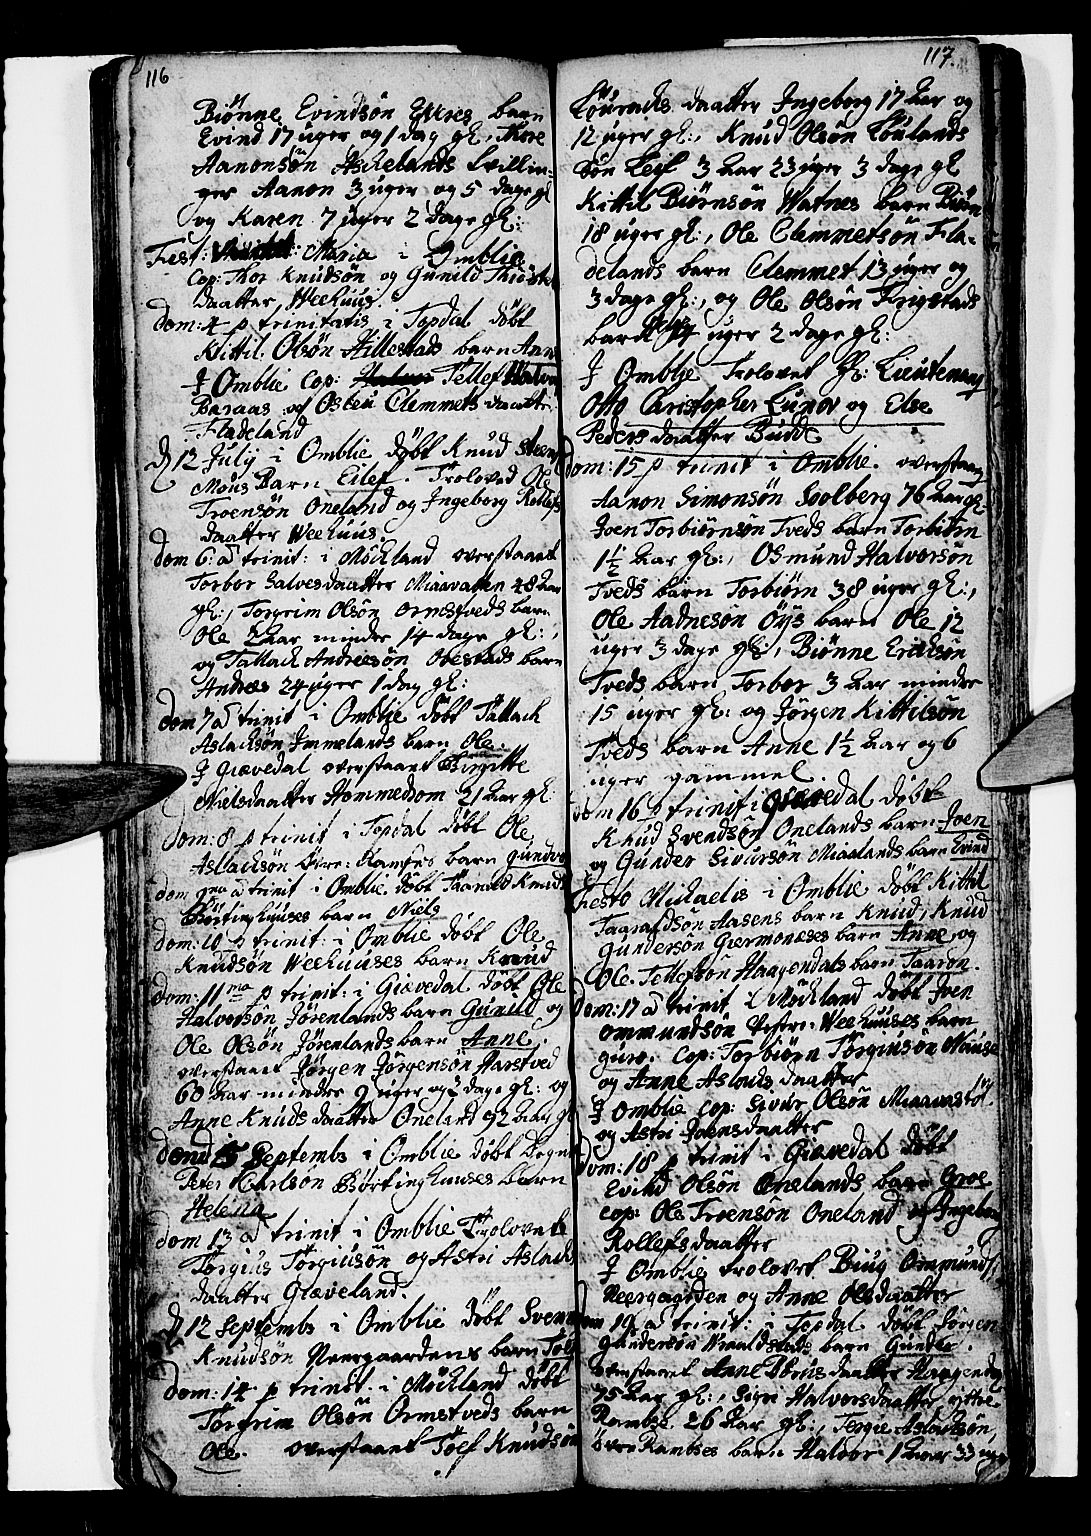 116
Biønne Evindsøn Ettres barn
Evind 17 uger og 1 dag gl:, Thore
Aanonsøn Askelands tvillin-
ger Aanon 3 uger og 5 dage gl
og Karen 7 uger 2 dage gl:
Fest: Maria i Omblie
Cop: Thor Knudsøn og Gunild
daatter, Weehuus.
dom: 4 p trinitatis i Topdal døbt
Kittil Olsøn Hillestads barn Anne
J Omblie Cop: Tellef
Basaas og Osleu Clemmets daatter
Fladeland
d 12 July i Omblie døbt Knud
Mous Barn Eilef. Troloved Ole
Troensøn Oneland og Ingeborg Rollefs
daatter Weehuus
dom 6 a trinit: i Møckland overstaaet
Torbor Salvesdaatter Miaavaten 48 aar
gl:, Torgrim Olsøn Ormstveds barn
Ole 2 aar mindre 14 dage gl:,
og Tallack Andresøn Obestads barn
Andres 24 uger 1 dag gl:
dom 7 a trinit i Omblie døbt Tallack
Aslacksøn Immelands barn Ole.
J Giævedal overstaaet Birgitte
Nielsdaatter Hommedsom 21 aar gl
dom: 8 p trinit i Topdal døbt Ole
Aslacksøn øvre: Ramses barn Gundvor
dom 9na a trinit i Omblie døbt Taarald Knuds
Børtinghuuses barn Niels
dom: 10 p trinit: i Omblie døbt Ole
Knudsøn Weehuuses barn Knud
dom: 11ma p trinit: i Giævedal døbt Ole
Halvorsøn Jørenlands barn Gunild og
Ole Olsøn Jørenlands barn Anne.
overstaaet Jørgen Jørgensøn Harstved
60 aar mindre 9 uger og 2 dage gl: og
Anne Knuds daatter Oneland 92 aar gl
dend 5 Septembs i Omblie døbt
Peter Carlsøn Børtinghuuses barn
Helena
dom 13 a trinit i Omblie Trolovet
Torgius Torgiusøn og Astri Aslacks
daatter Giæveland.
d 12 Septembs i Omblie døbt Svenn
Knudsøn Neergaardens barn
dom: 14 p trinit. i Møckland døbt
Torgrim Olsøn Ormstveds barn
Ole. overstaaet Toef Knudsøn
117.
daatter Ingeborg 17 aar og
12 uger gl:, Knud Olsøn
søn Leif 3 aar 23 uger 3 dage gl
Kittil Biørnsøn Watnes barn Biøn
18 uger gl:, Ole Clemmetsøn Fla-
delands barn Clemmet 13 uger og
3 dage gl:, og Ole Olsøn Frigstads
barn uger 2 dage gl:
J Omblie Trolovet Hr: Lieutenant
Otto Christopher Lunov og Else
Peders daatter Budde
dom: 15 p trinit i Omblie. overstaaet
Aanon Simonsøn Soolberg 76 aar gl.
Joen Torbiørnsøn Tveds barn Torbiørn
1½ aar gl:, Osmund Halvorsøn
Tveds barn Torbiørn 38 uger gl:,
Ole Aadnesøn Øys barn Ole 12
uger 3 dage gl:, Biønne Ericksøn
Tveds barn Torbor 3 aar mindre
15 uger gl: og Jørgen Kittilsøn
Tveds barn Anne 1½ aar og 6
uger gammel.
dom 16 p trinit i Giævedal døbt
Knud Svendsøn Onelands barn Joen
og Gunder Sivursøn Miaalands barn Evind
Festo Michaelis i Omblie døbt Kittil
Taaraldsøn Aasens barn Knud, Knud
Gundersøn Giermoneses barn Anne og
Ole Tellefsøn Haagendals barn Taaron.
dom: 17 a trinit i Møckland døbt Joen
Ommundsøn Vestre: Weehuuses barn
guro. Cop: Torbiørn Torgimson
og Anne Aslouls daatter
J Omblie Cop: Sivur Olsøn
og Astri Joensdaatter
dom: 18 p trinit i Giævedal døbt
Evind Olsøn Onelands barn Groe
Cop: Ole Troensøn Oneland og Ingeborg
Rollefsdaatter
J Omblie trolovet Biug Ommunds
Neergaarden og Anne Olsdaatter
dom 19 a trinit: i Topdal døbt Jørgen
Gundersøn barn Gunder.
overstaaet Anne daatter Haagendal
75 aar gl:, Signi Halvorsdaatter yttre
Ramse 26 aar gl:, Tergie Aslacksøn,
øvre Ramses barn Halvor 1 aar 33 uger